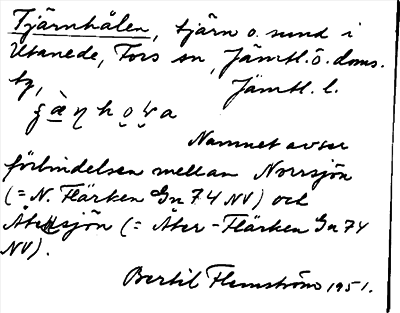 Tjärnhålen, tjärn o. sund i
Utanede, Fors sn, Jämtl. ö. doms.
Jämtl. l.
Namnet avser
förbindelsen mellan Norrsjön
(= N. Flärken Gn 74 NV) och
(= Åter-Flärken Gn 74
NV).
Bertil Flemström 1951.